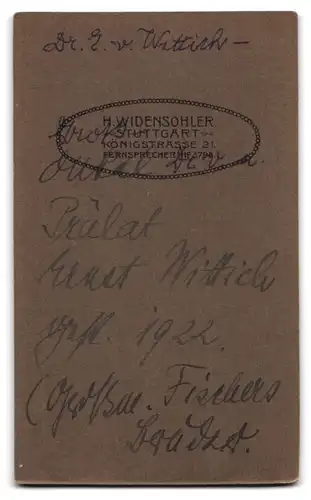 Dr. E. v. Wittich –
H. WIDENSOHLER
STUTTGART
KÖNIGSTRASSE 21.
FERNSPRECHER
Prälat
Ernst Wittich
gest. 1922.
(Großm. Fischers
Bruder.